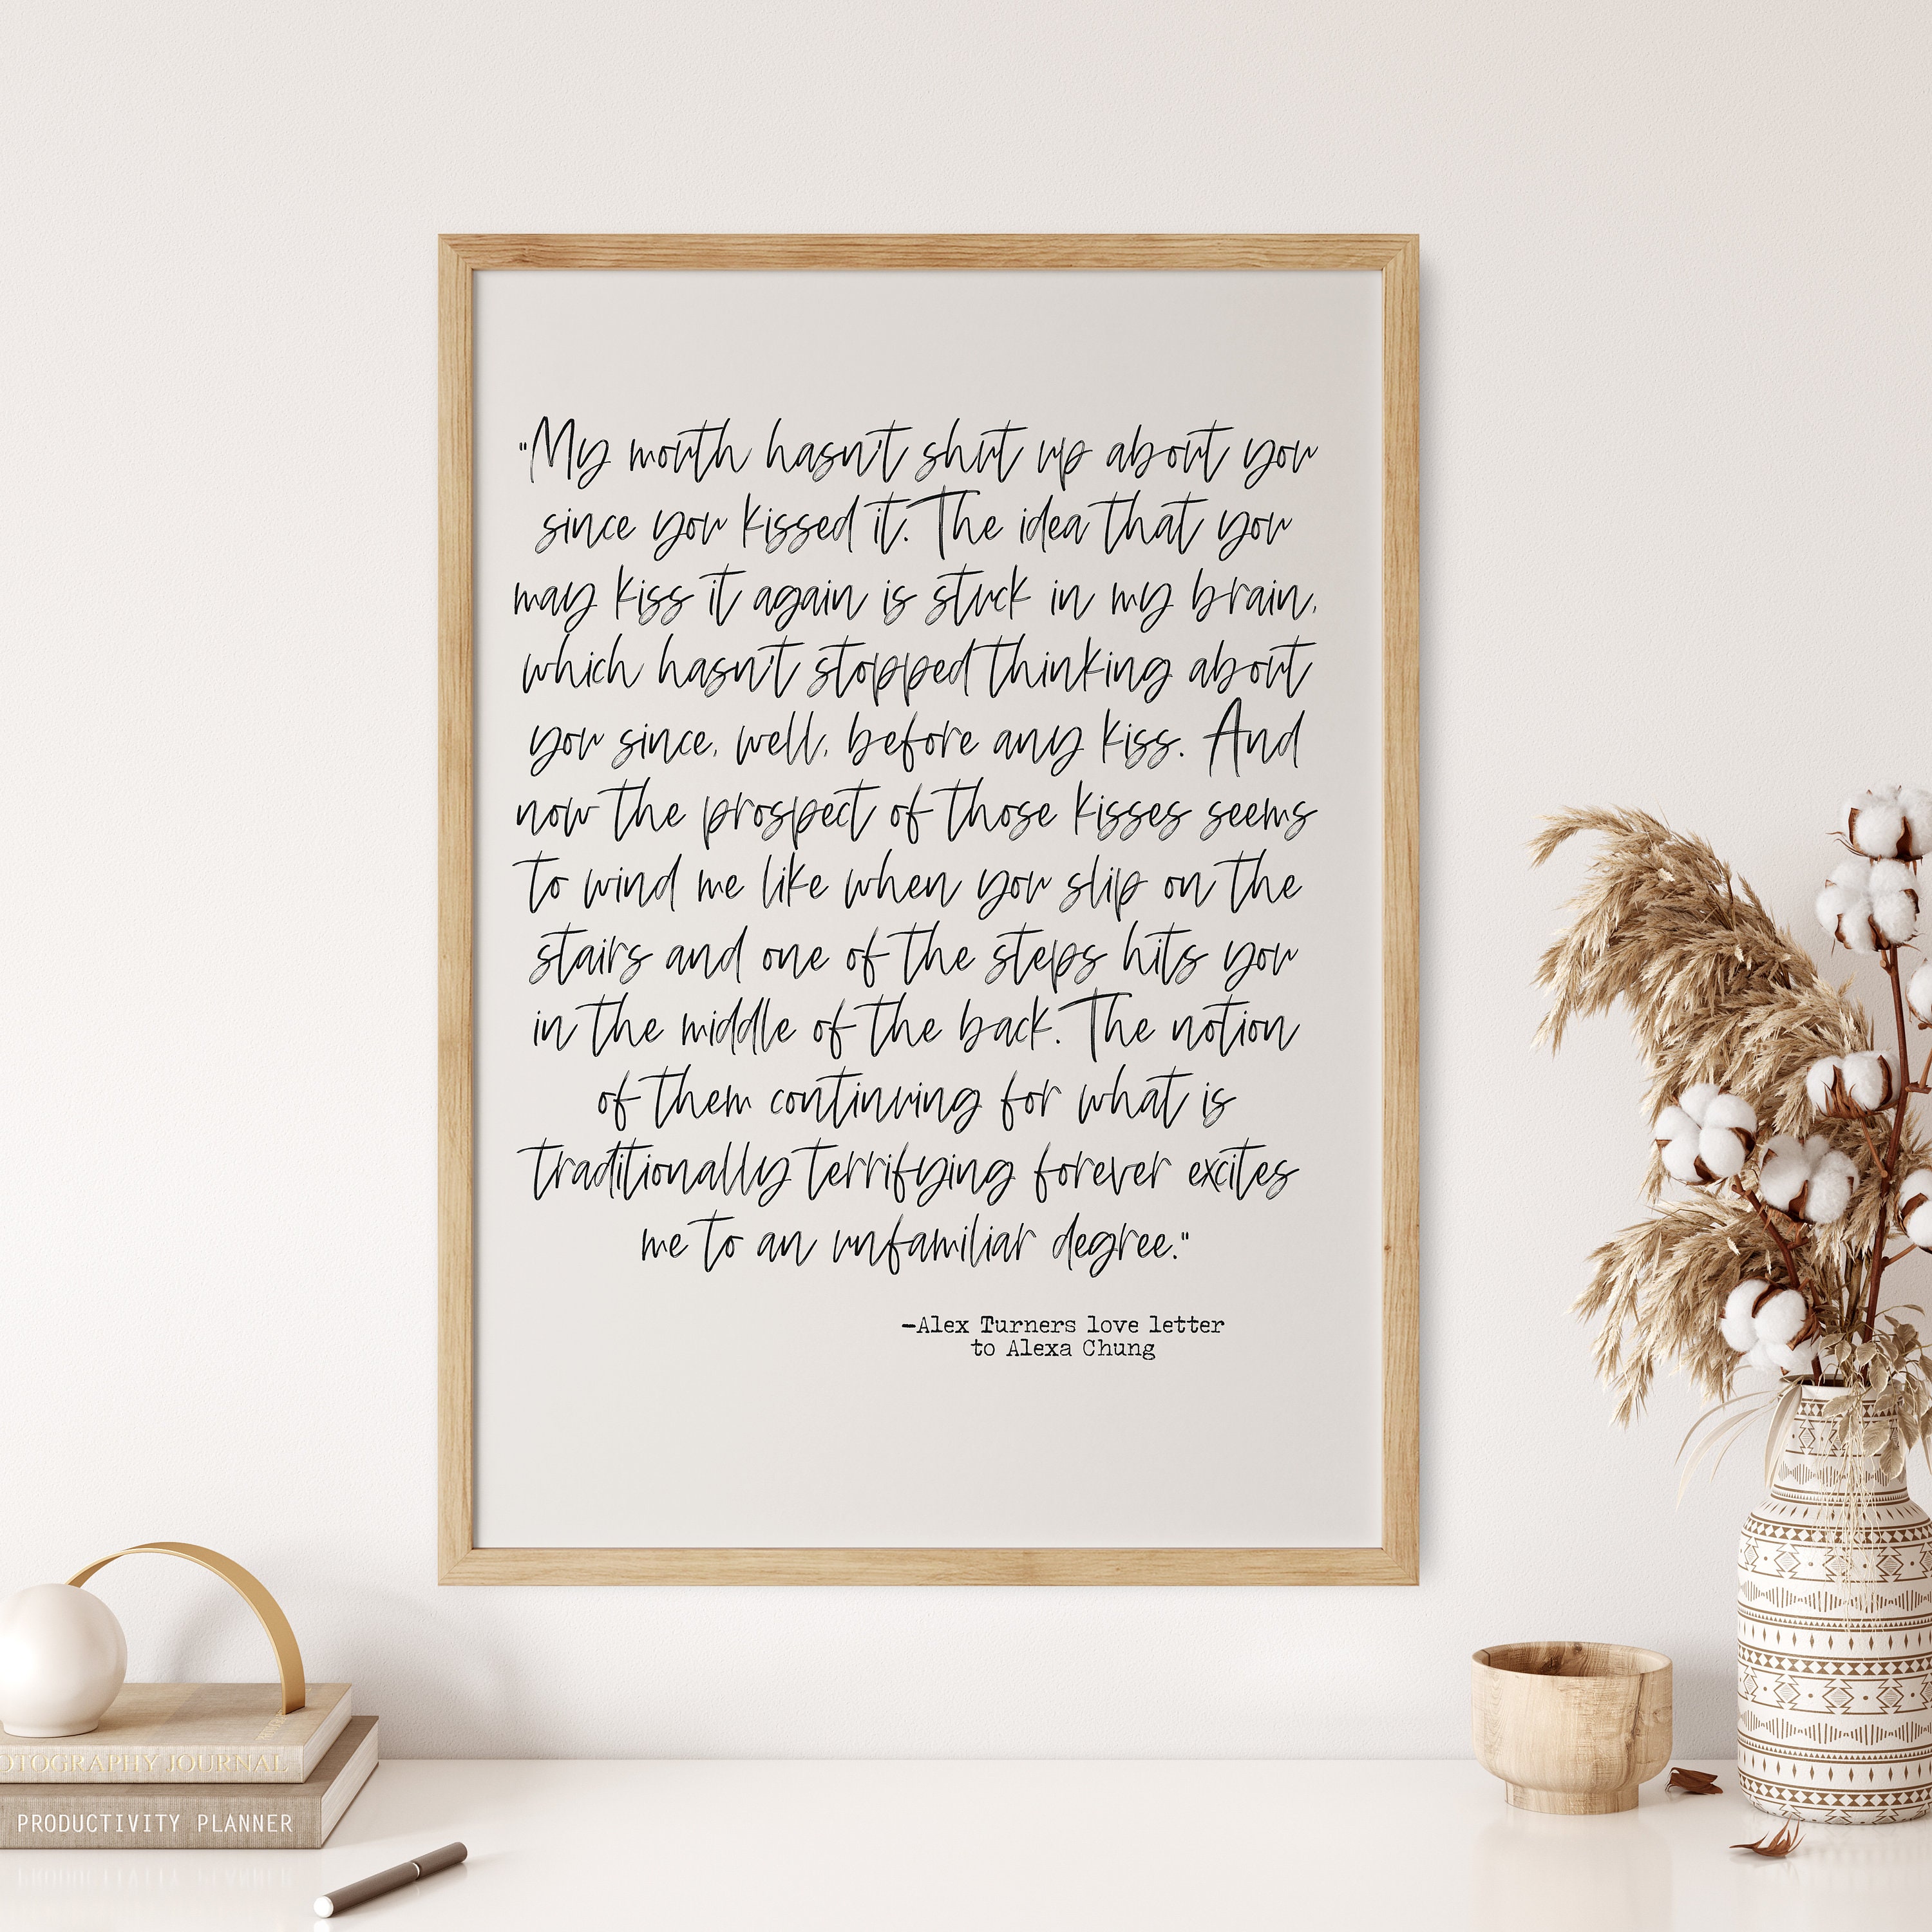 "My mouth hasn't shut up about you
since you kissed it. The idea that you
may kiss it again is stuck in my brain,
which hasn't stopped thinking about
you since, well, before any kiss. And
now the prospect of those kisses seems
to wind me like when you slip on the
stairs and one of the steps hits you
in the middle of the back. The notion
of them continuing for what is
traditionally terrifying forever excites
me to an unfamiliar degree."
—Alex Turners love letter
to Alexa Chung
OTOGRAPHY JOURNAL
PRODUCTIVITY PLANNER